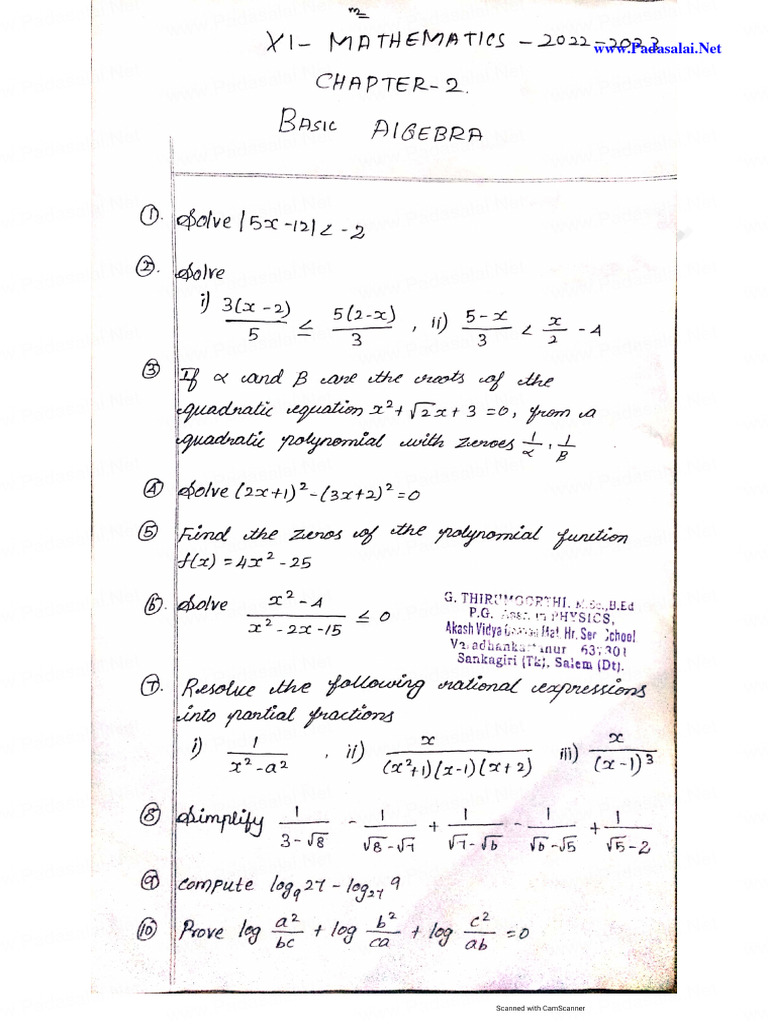 XI- MATHEMATICS - 2022-2023
www.Padasalai.Net
CHAPTER-2.
BASIC ALGEBRA
①. Solve |5x-12| < -2
②. Solve
i) 3(x-2)/5 ≤ 5(2-x)/3 , ii) 5-x/3 < x/2 - 4
③ If α and β are the roots of the
quadratic equation x²+√2x+3=0, from a
quadratic polynomial with zeroes 1/α, 1/β
④ Solve (2x+1)²-(3x+2)²=0
⑤ Find the zeros of the polynomial function
f(x) = 4x²-25
⑥. Solve x²-4/x²-2x-15 ≤ 0
G. THIRUMOORTHI. M.Sc.,B.Ed
P.G. PHYSICS,
Akash Vidya Mat. Hr. Sec School
637301
Sankagiri (Tk), Salem (Dt).
⑦. Resolve the following rational expressions
into partial fractions
i) 1/x²-a² , ii) x/(x²+1)(x-1)(x+2) iii) x/(x-1)³
⑧ Simplify 1/3-√8 - 1/√8-√7 + 1/√7-√6 - 1/√6-√5 + 1/√5-2
⑨ compute log₉27 - log₂₇9
⑩ Prove log a²/bc + log b²/ca + log c²/ab = 0
Scanned with CamScanner